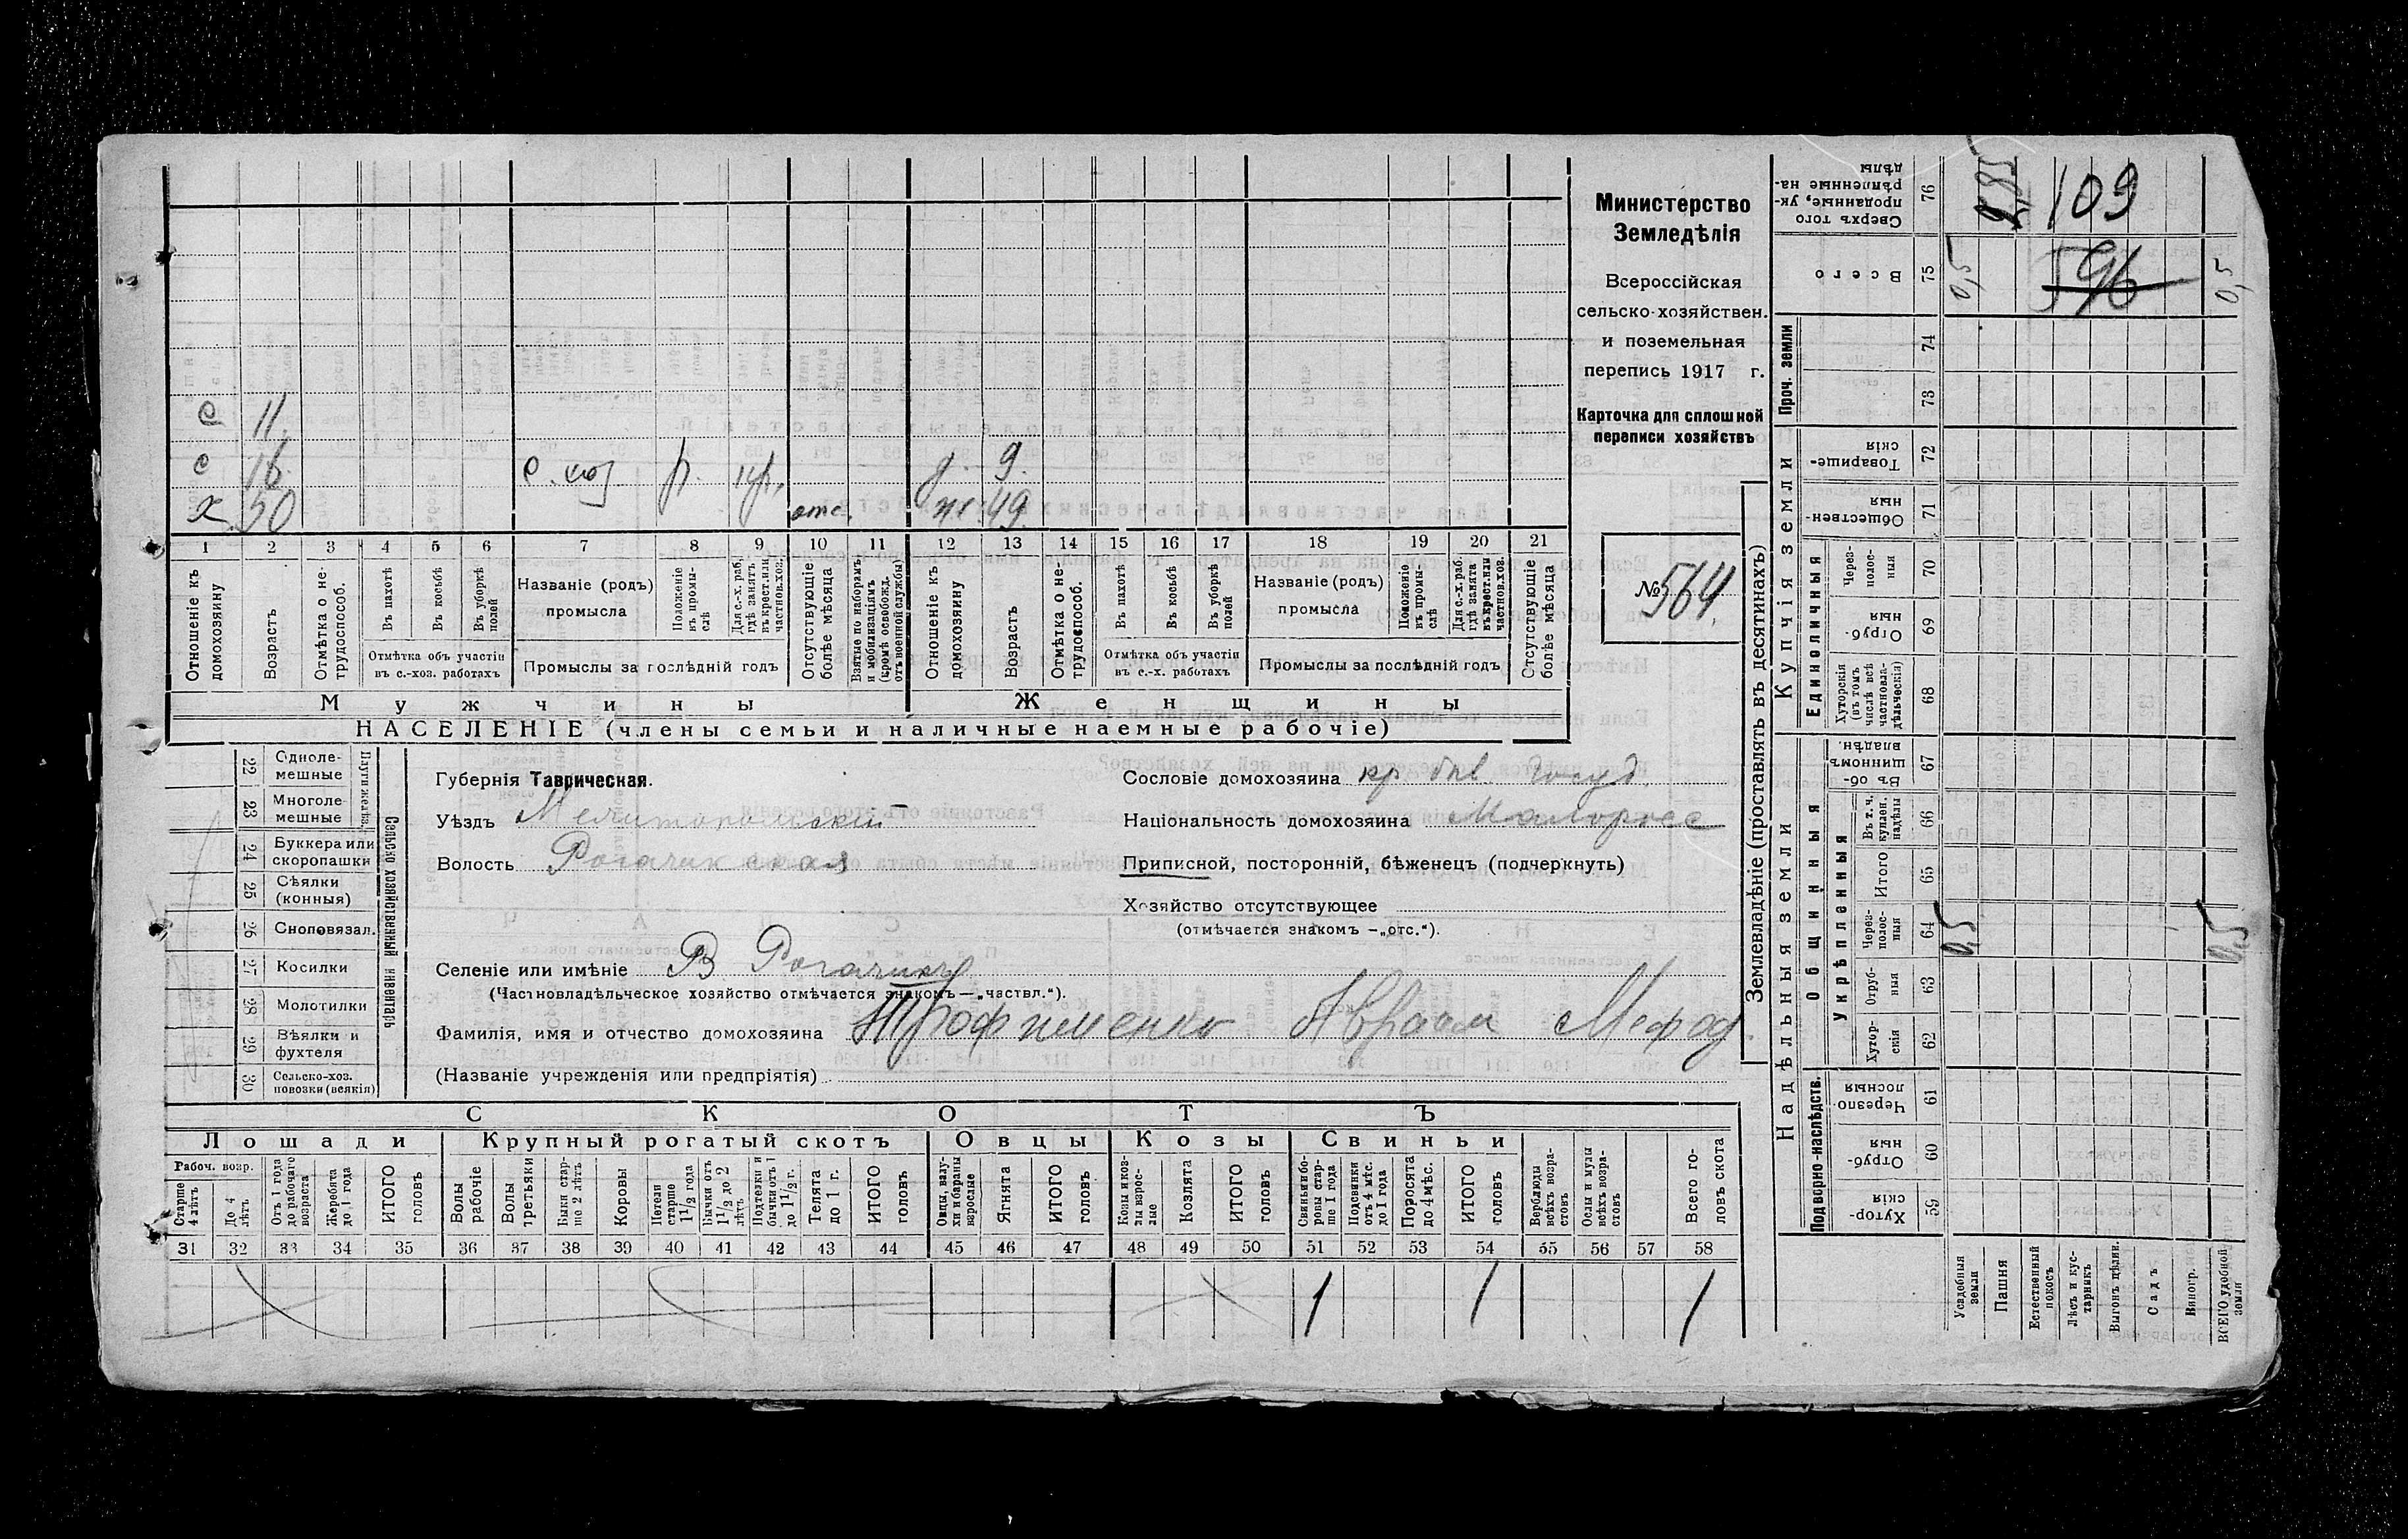 Министерство
Земледѣлія
Всероссійская
сельско-хозяйствен.
и поземельная
перепись 1917 г.
Карточка для сплошной
переписи хозяйствъ
№ 564.
с 11.
с 16. с. хоз р. кр. д. 9.
х. 50 отс. ж. 49.
1 2 3 4 5 6 7 8 9 10 11 12 13 14 15 16 17 18 19 20 21
Отношеніе къ домохозяину
Возрастъ
Отмѣтка о нетрудоспособ.
Въ пахотѣ
Въ косьбѣ
Въ уборкѣ полей
Отмѣтка объ участіи въ с.-хоз. работахъ
Названіе (родъ) промысла
Положеніе въ промыслѣ
Для с.-х. раб. гдѣ занятъ въ крест. или частнов. хоз.
Промыслы за послѣдній годъ
Отсутствующіе болѣе мѣсяца
Взятые по наборамъ и мобилизаціямъ (кромѣ освобожд. отъ военной службы)
Отношеніе къ домохозяину
Возрастъ
Отмѣтка о нетрудоспособ.
Въ пахотѣ
Въ косьбѣ
Въ уборкѣ полей
Отмѣтка объ участіи въ с.-х. работахъ
Названіе (родъ) промысла
Положеніе въ промыслѣ
Для с.-х. раб. гдѣ занята въ крест. или частнов. хоз.
Промыслы за послѣдній годъ
Отсутствующіе болѣе мѣсяца
Мужчины Женщины
НАСЕЛЕНІЕ (члены семьи и наличные наемные рабочіе)
22 Однолемешные
23 Многолемешные
Плуги желѣз.
24 Буккера или скоропашки
25 Сѣялки (конныя)
26 Сноповязал.
27 Косилки
28 Молотилки
29 Вѣялки и фухтеля
30 Сельско-хоз. повозки (всякія)
Сельско хозяйственный инвентарь
Губернія Таврическая.
Уѣздъ Мелитопольскій
Волость Рогачикская
Селеніе или имѣніе В Рогачикъ
(Частновладѣльческое хозяйство отмѣчается знакомъ — „частвл.“).
Фамилія, имя и отчество домохозяина Трофименко Авраам Мефод.
(Названіе учрежденія или предпріятія)
Сословіе домохозяина кр. быв. Госуд.
Національность домохозяина Малоросс
Приписной, посторонній, бѣженецъ (подчеркнуть)
Хозяйство отсутствующее
(отмѣчается знакомъ — „отс.“).
СКОТЪ
Лошади Крупный рогатый скотъ Овцы Козы Свиньи
Рабоч. возр.
Старше 4 лѣтъ
До 4 лѣтъ
Отъ 1 года до рабочаго возраста
Жеребята до 1 года
ИТОГО головъ
Волы рабочіе
Волы третьяки
Быки старше 2 лѣтъ
Коровы
Нетели старше 1½ года
Бычки отъ 1½ до 2 лѣтъ
Подтелки и бычки отъ 1 до 1½ г.
Телята до 1 г.
ИТОГО головъ
Овцы, валухи и бараны взрослые
Ягнята
ИТОГО головъ
Козы и козлы взрослые
Козлята
ИТОГО головъ
Свиньи и боровы старше 1 года
Подсвинки отъ 4 мѣс. до 1 года
Поросята до 4 мѣс.
ИТОГО головъ
Верблюды всѣхъ возрастовъ
Ослы и мулы всѣхъ возрастовъ
Всего головъ скота
31 32 33 34 35 36 37 38 39 40 41 42 43 44 45 46 47 48 49 50 51 52 53 54 55 56 57 58
1 1 1
Землевладѣніе (проставлять въ десятинахъ)
76 Сверхъ того проданные, укрѣпленные надѣлы 109
75 Всего 0,5 596 0,5
Проч. земли
74
73
Купчія земли
72 Товарищескія
71 Общественныя
Единоличныя
70 Черезполосныя
69 Отрубныя
68 Хуторскія (въ томъ числѣ всѣ частновладѣльческія)
Надѣльныя земли
Общинныя
67 Въ общинномъ владѣн.
Укрѣпленныя
66 Въ т. ч. куплен. надѣлы
65 Итого
64 Черезполосныя 0,5 0,5
63 Отрубныя
62 Хуторскія
Подворно-наслѣдств.
61 Черезполосныя
60 Отрубныя
59 Хуторскія
Усадебныя земли
Пашня
Естественный покосъ
Лѣсъ и кустарникъ
Выгонъ цѣлин.
Садъ
Виногр.
ВСЕГО удобной земли